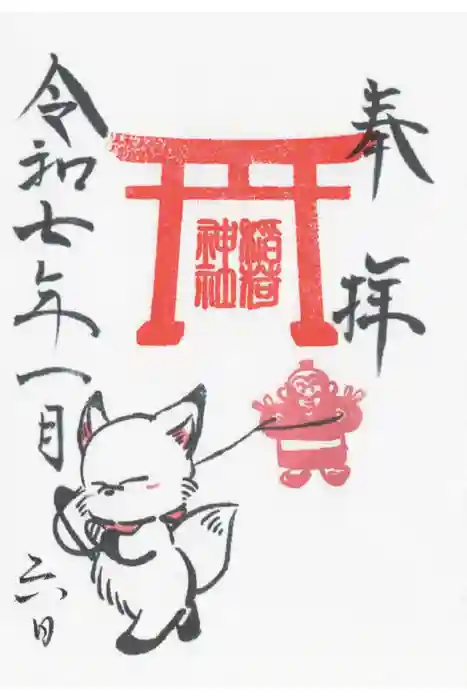 奉拝
稲荷
神社
令和七年一月六日